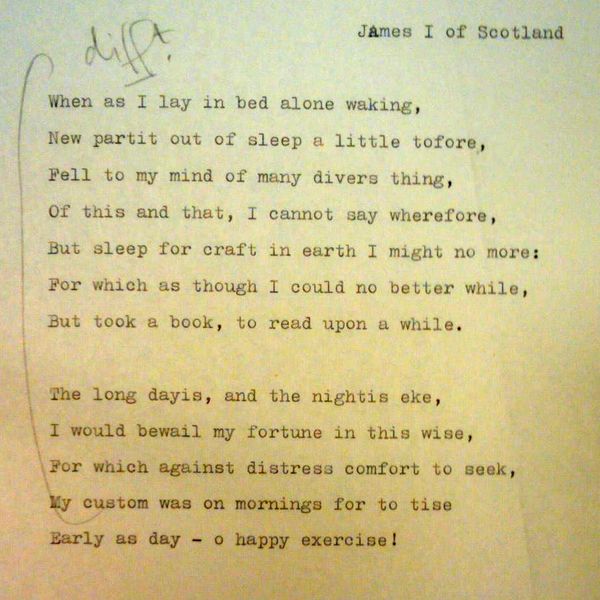 difft.
James I of Scotland
When as I lay in bed alone waking,
New partit out of sleep a little tofore,
Fell to my mind of many divers thing,
Of this and that, I cannot say wherefore,
But sleep for craft in earth I might no more:
For which as though I could no better while,
But took a book, to read upon a while.
The long dayis, and the nightis eke,
I would bewail my fortune in this wise,
For which against distress comfort to seek,
My custom was on mornings for to tise
Early as day - o happy exercise!